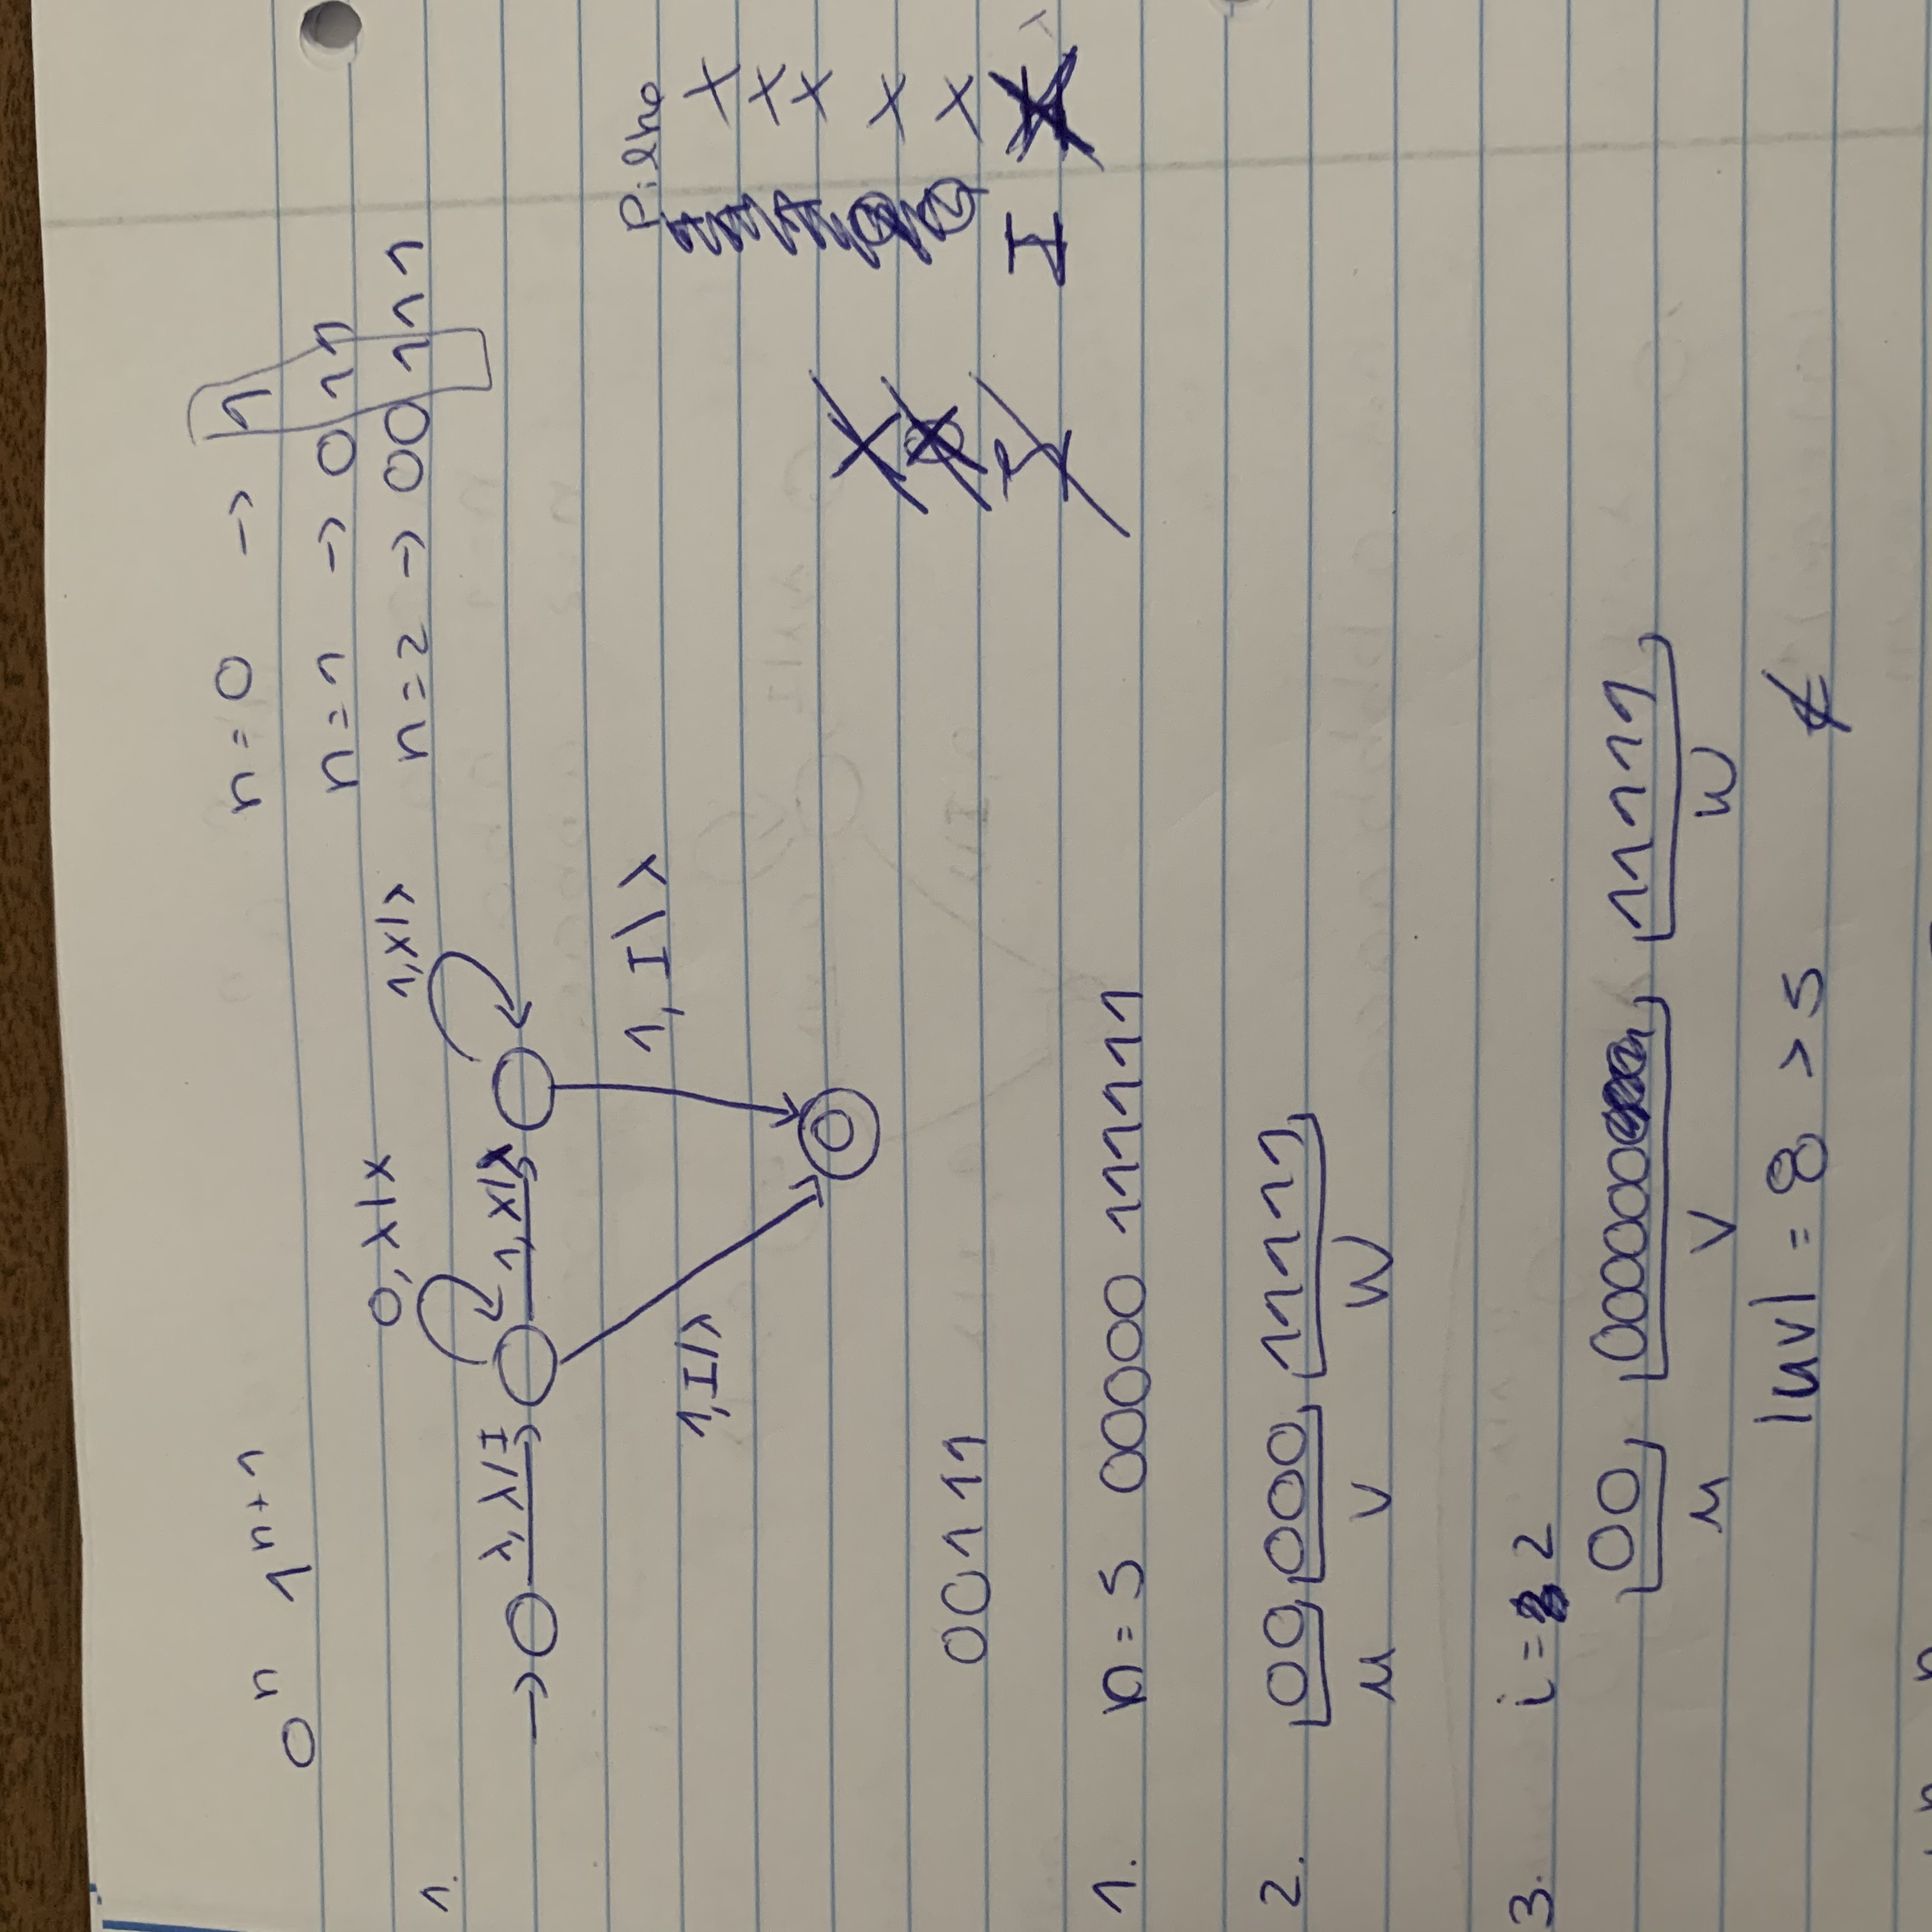 0^n 1^{n+1}
n = 0 -> 1
n = 1 -> 011
n = 2 -> 00111
1.
0, λ/x
1, x/λ
λ, λ/I
1, x/λ
1, I/λ
1, I\λ
Pilha
x
x
x
x
x
x
x
I
I
00111
1. n = 5 00000 111111
2. 00 000 11111
u v w
3. i = 2
00 000000 11111
u v w
|uv| = 8 > 5 ∉